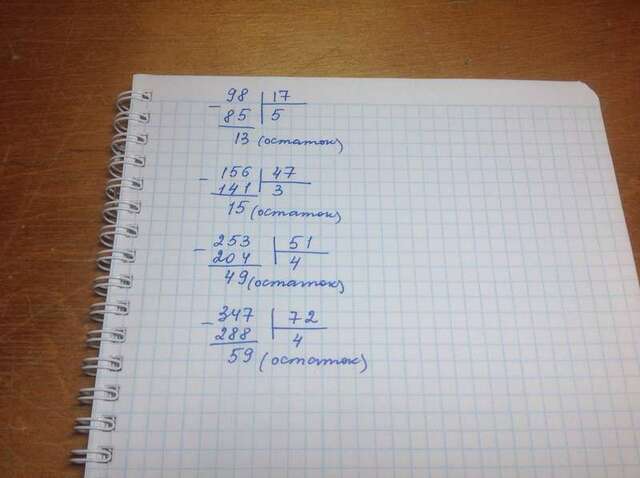 - 98 | 17
85 | 5
13 (остаток)
- 156 | 47
141 | 3
15 (остаток)
- 253 | 51
204 | 4
49 (остаток)
- 347 | 72
288 | 4
59 (остаток)